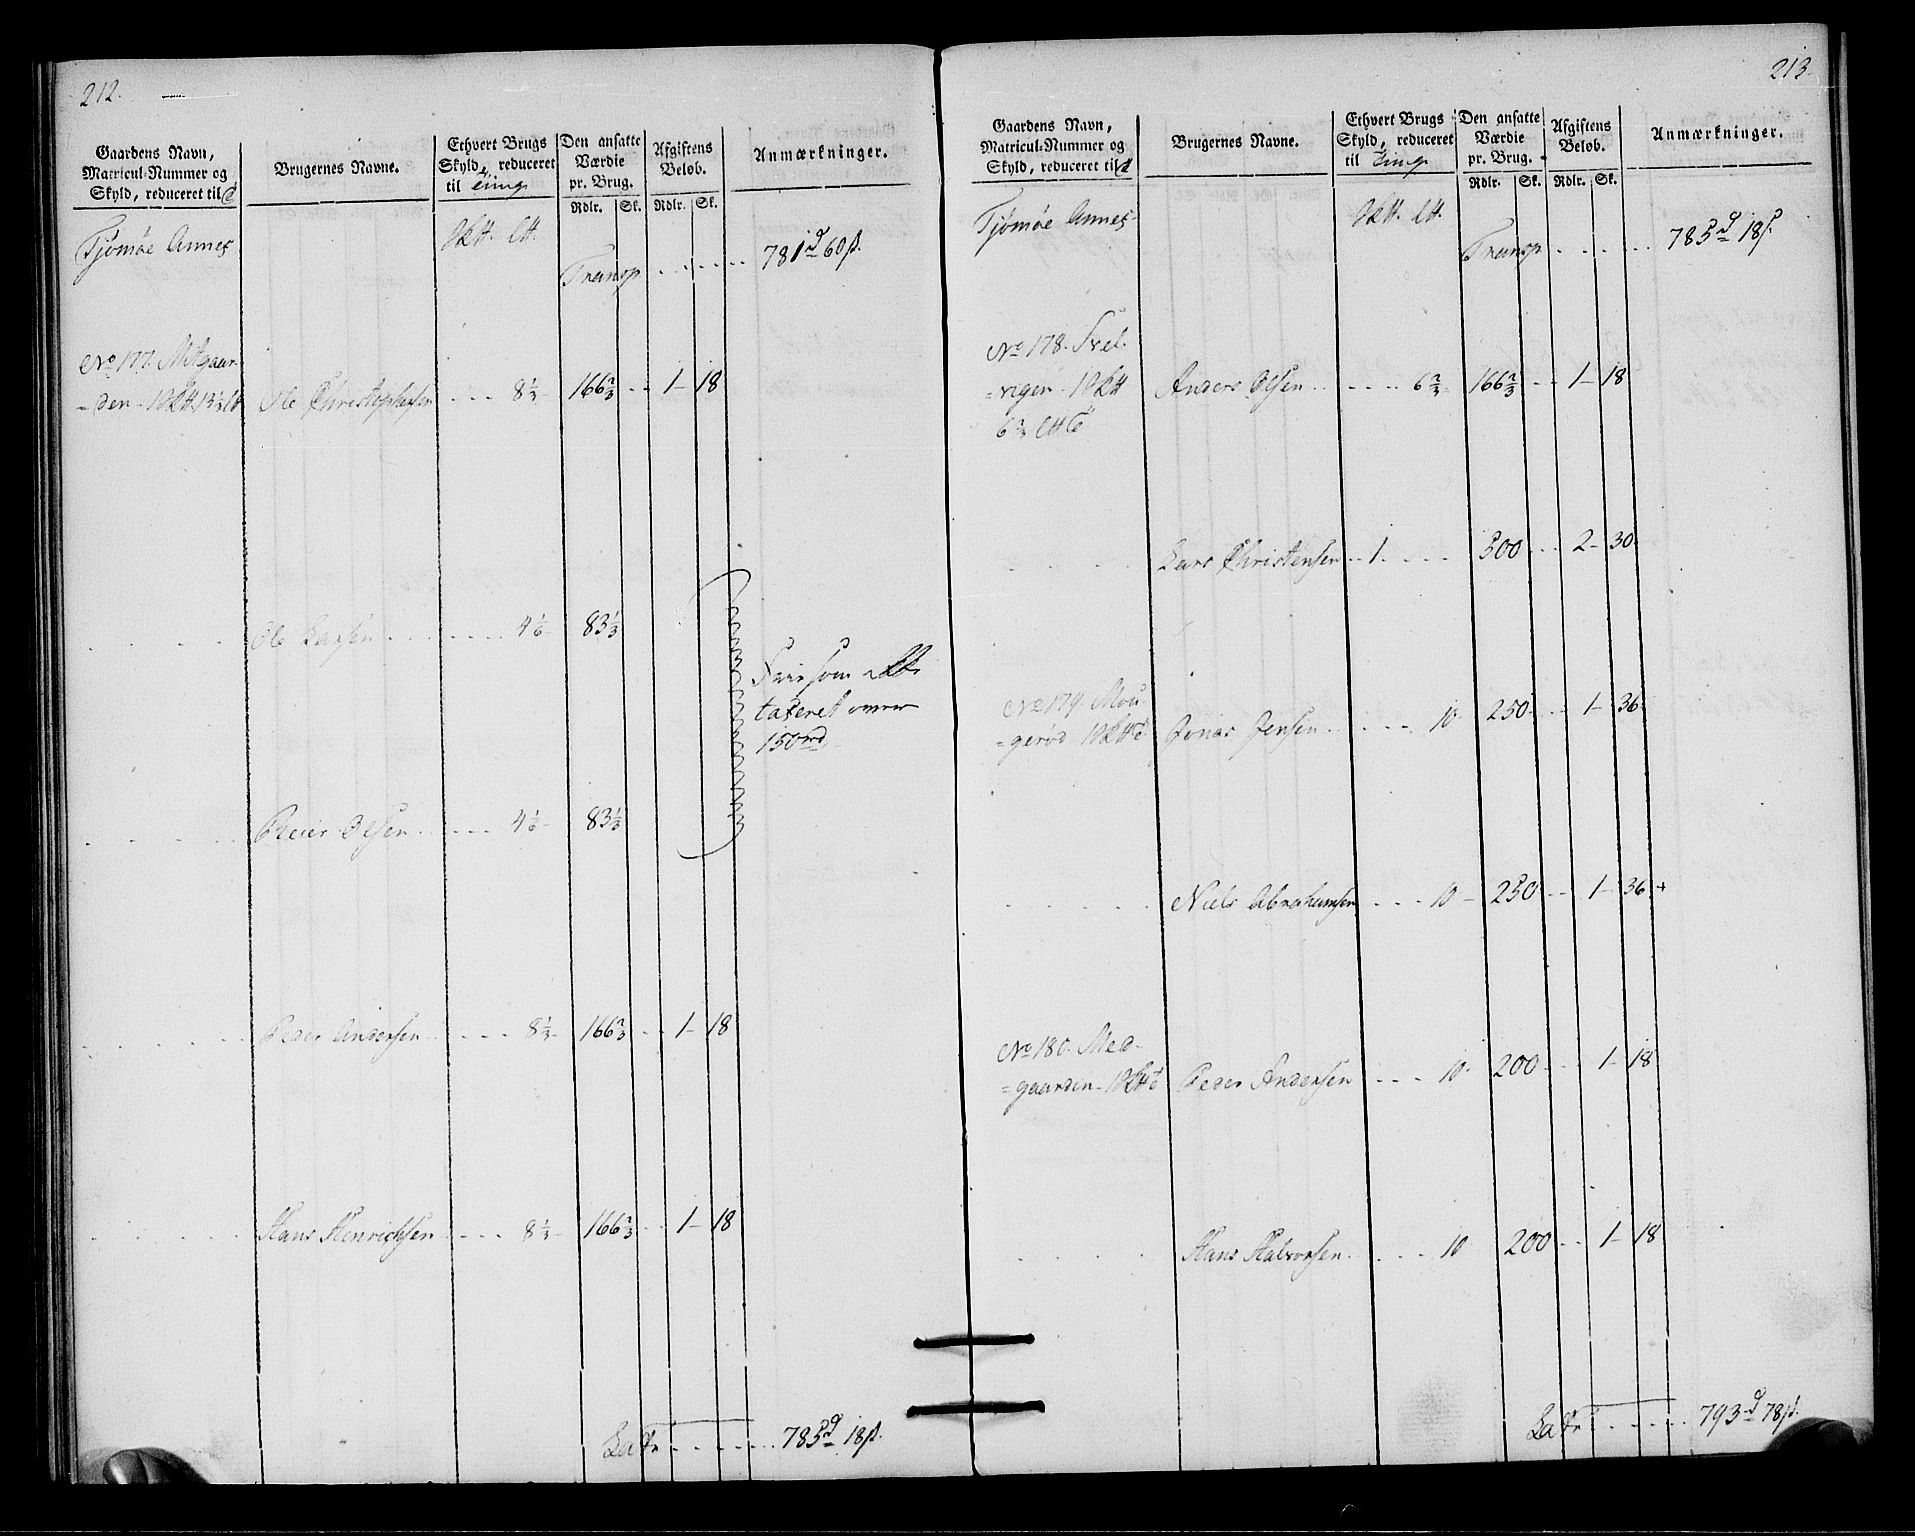 212.
Gaardens Navn,
Matricul-Nummer og
Skyld, reduceret til
Brugernes Navne.
Ethvert Brugs
Skyld, reduceret
til Tung
Den ansatte
Værdie
pr. Brug.
Rdlr. Sk.
Afgiftens
Beløb.
Rdlr. Sk.
Anmærkninger.
Tjømøe Annex
Transp . . . . . 781d 60ß.
No 177. Mitgaar-
=den - Ole Christophersen . . . 8⅓ 166⅔ . . 1 - 18
Ole Larsen . . . . . . . 4⅙ 83⅓
Frie som
taxeret under
150rd
Reier Olsen . . . . . 4⅙ 83⅓
Peder Andersen . . . . 8⅓ 166⅔ . . 1 - 18
Hans Henrichsen . . . . 8⅓ 166⅔ . . 1 - 18
Latr . . . . . . 785d 18ß.
213.
Gaardens Navn,
Matricul-Nummer og
Skyld, reduceret til
Brugernes Navne.
Ethvert Brugs
Skyld, reduceret
til Tung
Den ansatte
Værdie
pr. Brug.
Rdlr. Sk.
Afgiftens
Beløb.
Rdlr. Sk.
Anmærkninger.
Tjømøe Annex
Transp . . . . . 785d 18ß.
No 178. Svel-
=vigen - Anders Olsen . . . . . . 6⅔ 166⅔ . . 1 - 18
Lars Christensen . . 1 . . . . 500 . . 2 - 30
No 179. Mou
=gerød Jonas Jensen . . . . . 10 250 . . 1 - 36
Niels Abrahamsen . . . 10 - 250 . . 1 - 36 +
No 180. Med-
=gaarden - Peder Andersen . . . 10 200 . . 1 - 18
Hans Halvorsen . . . . 10 200 . . 1 - 18
Latr . . . . . 793d 78ß.